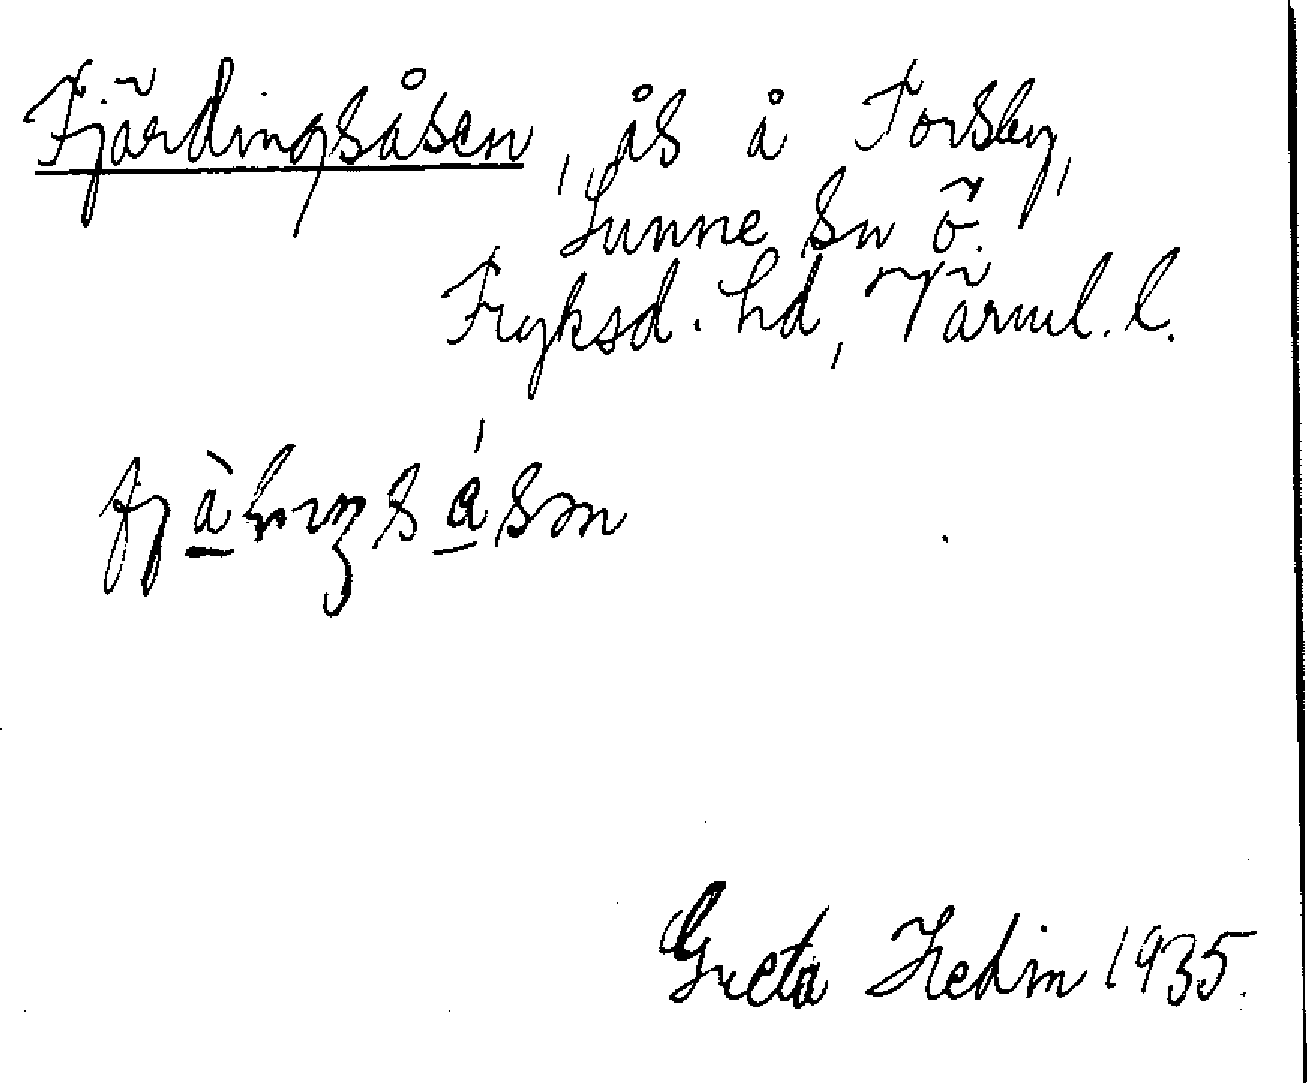 Fjärdingsåsen, ås å Forsby,
Sunne sn ö.
Fryksd. hd, Värml. l.
Greta Hedin 1935.